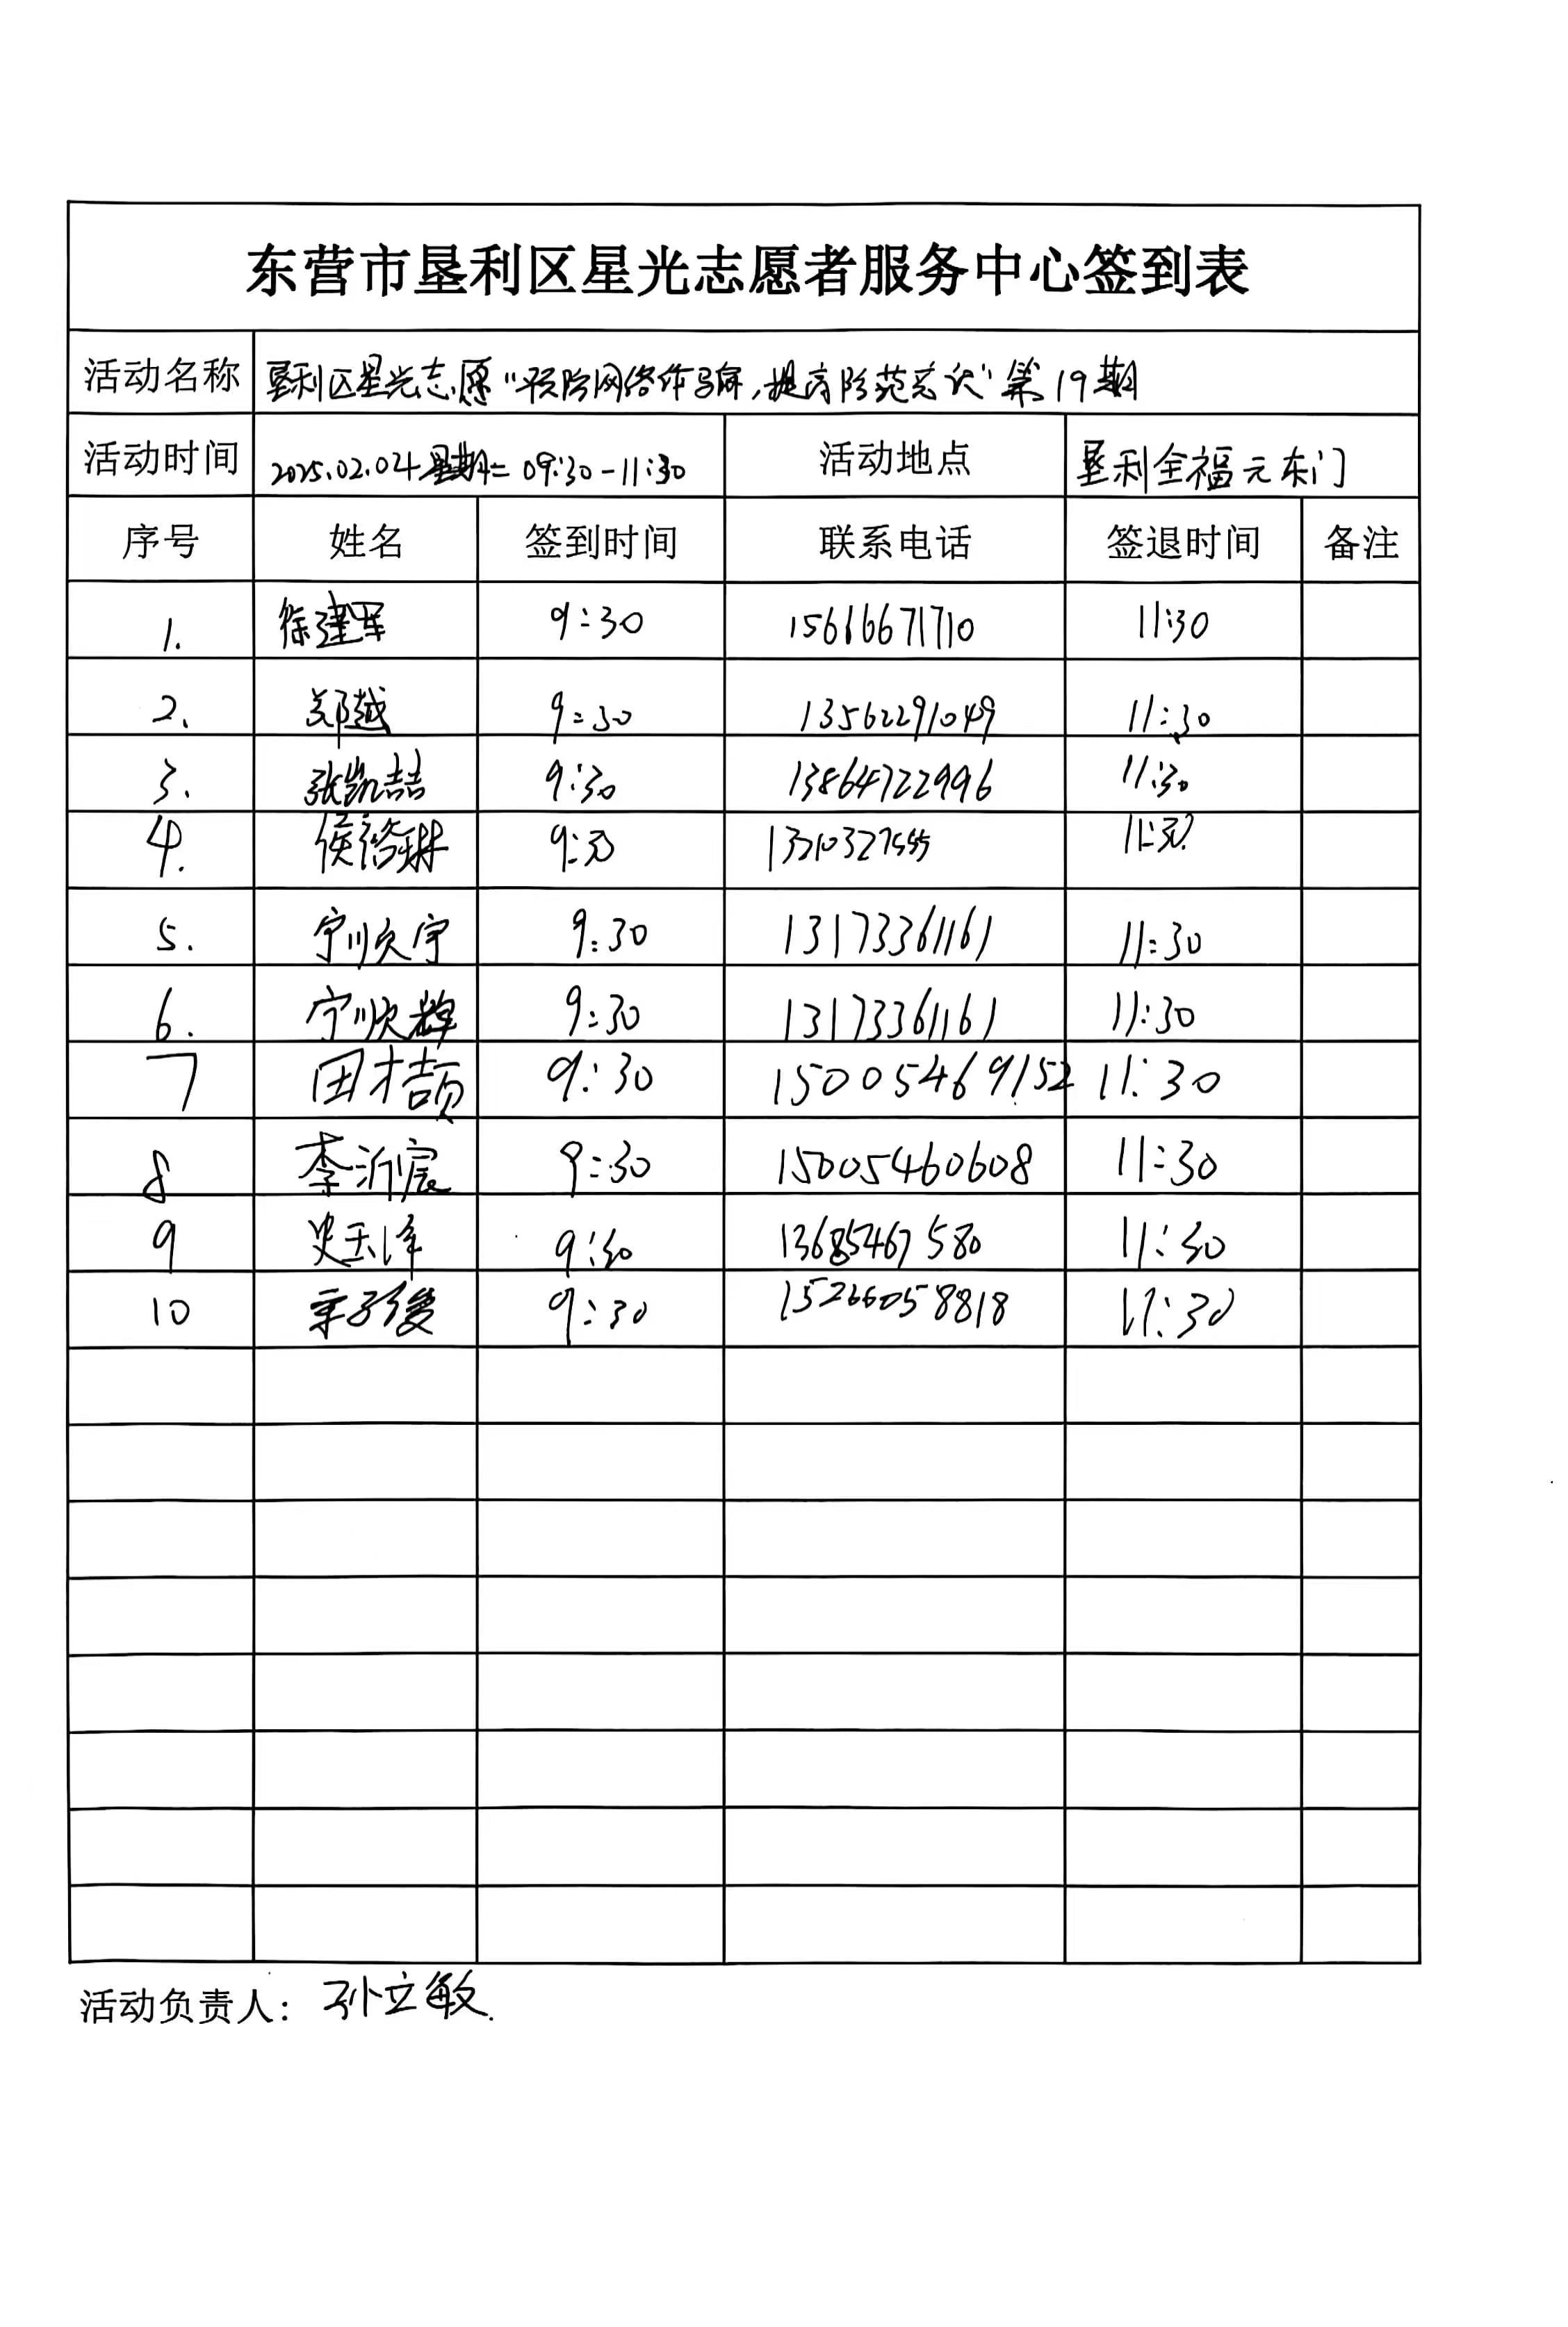 东营市垦利区星光志愿者服务中心签到表
活动名称 垦利区星光志愿“预防网络诈骗,提高防范意识”第19期
活动时间 2025.02.04 星期二 09:30-11:30 活动地点 垦利全福元东门
序号 姓名 签到时间 联系电话 签退时间 备注
1. 徐建军 9:30 15616671710 11:30
2. 郑越 9:30 13562291049 11:30
3. 张凯喆 9:30 13864722996 11:30
4. 侯裕琳 9:30 11:30
5. 宁顺宇 9:30 13173361161 11:30
6. 宁顺辉 9:30 13173361161 11:30
7 田才喆 9:30 15005469152 11:30
8 李沂宸 9:30 15005460608 11:30
9 史玉泽 9:30 13685467580 11:30
10 子俊 9:30 15266058818 11:30
活动负责人: 孙立敏.